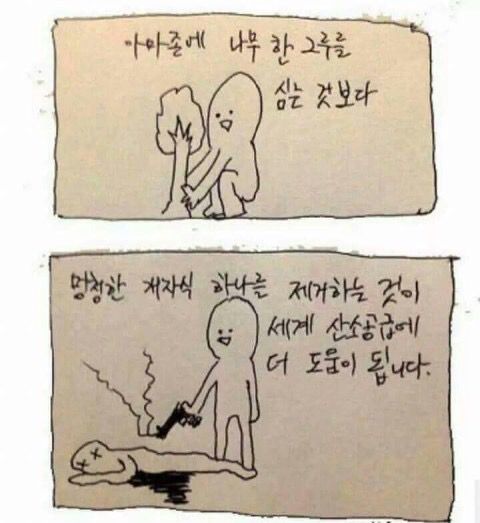 아마존에 나무 한 그루를
심는 것보다
멍청한 개자식 하나를 제거하는 것이
세계 산소공급에
더 도움이 됩니다.